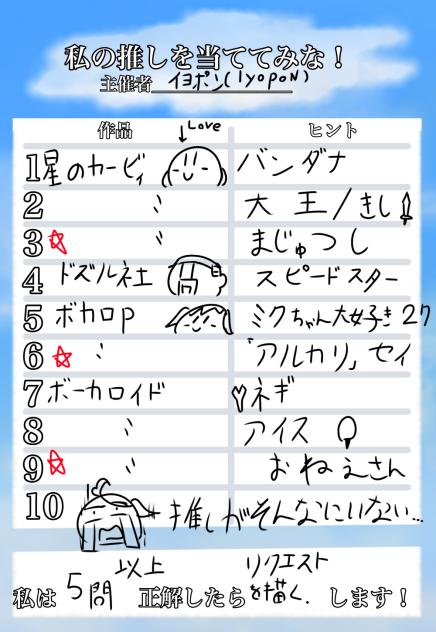 私の推しを当ててみな！
主催者 イヨポン(IYOPON)
作品 ↓Love ヒント
1 星のカービィ バンダナ
2 〃 大王/きし
3 ☆ 〃 まじゅつし
4 ドズル社 スピードスター
5 ボカロP ミクちゃん大好き27
6 ☆ 〃 「アルカリ」セイ
7 ボーカロイド ♡ネギ
8 〃 アイス
9 ☆ 〃 おねえさん
10 推しがそんなにいない…
私は5問以上正解したらリクエストを描く.します！